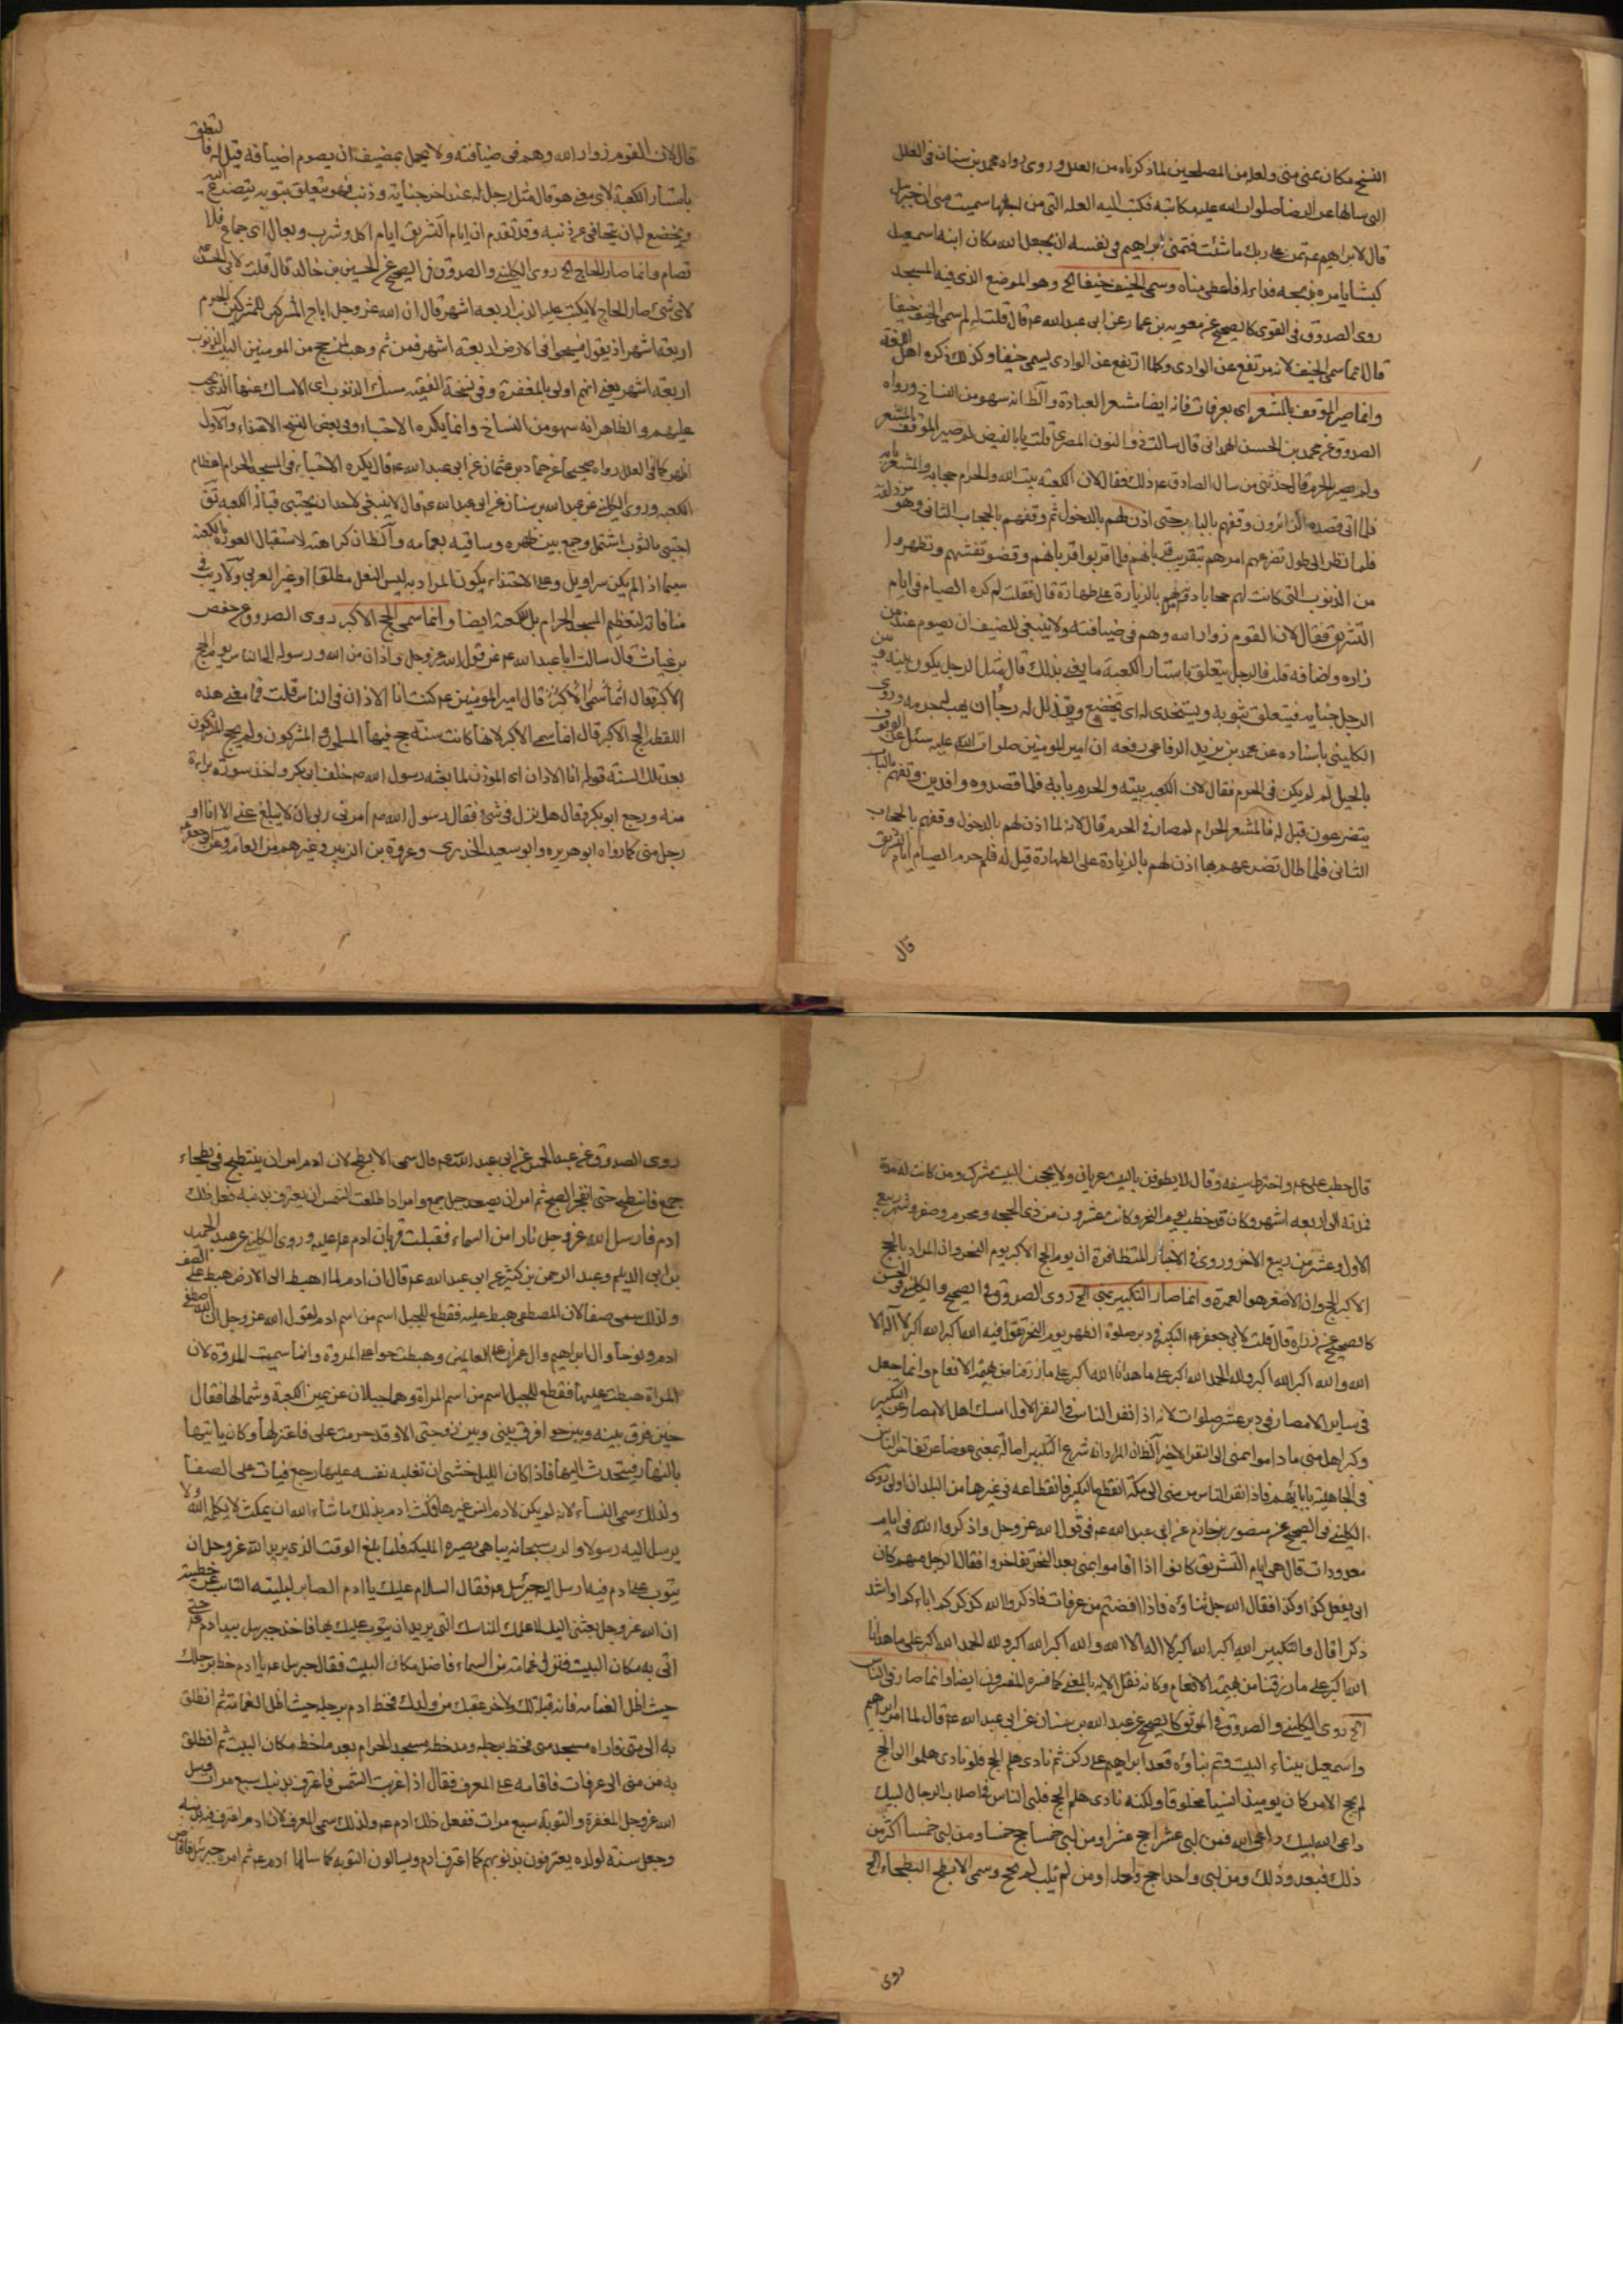 النسخ مكان عنى منى ولعله من المصلحين لما ذكرناه من العلل وروى رواه محمد بن سنان فى العلل
التى سالها عن الرضا صلوات الله عليه مكاتبة فكتب اليه العلة التى من اجلها سميت منى ان جبرئيل
قال لابراهيم عم تمن على ربك ما شئت فتمنى ابراهيم فى نفسه ان يجعل الله مكان ابنه اسمعيل
كبشا يامره بذبحه فداء له فاعطى مناه وسمى الخيف خيفا الخ وهو الموضع الذى فيه المسجد
روى الصدوق فى القوى كالصحيح عن معوية بن عمار عن ابى عبد الله عم قال قلت له لم سمى الخيف خيفا
قال انما سمى الخيف لانه مرتفع عن الوادى وكلما ارتفع عن الوادى يسمى خيفا وكذلك ذكره اهل اللغة
وانما صير الموقف بالمشعر اى بعرفات فانه ايضا مشعر العبادة والظ انه سهو من النساخ ورواه
الصدوق عن محمد بن الحسن الهمدانى قال سالت ذو النون المصرى قلت يا ابا الفيض لم صير الموقف بالمشعر
ولم يصير بالحرم قال حدثنى من سال الصادق عم ذلك فقال لان الكعبة بيت الله والحرام حجابه والمشعر بابه
فلما ان قصده الزائرون وقفهم بالباب حتى اذن لهم بالدخول ثم وقفهم بالحجاب الثانى وهو مزدلفة
فلما نظر الى طول تضرعهم امرهم بتقريب قربانهم فلما قربوا قربانهم وقضوا تفثهم وتطهروا
من الذنوب التى كانت لهم حجابا دونهم بالزيارة على طهارة قال فقلت لم كره الصيام فى ايام
التشريق فقال لان القوم زوار الله وهم فى ضيافته ولا ينبغى للضيف ان يصوم عند من
زاره واضافه قلت فالرجل يتعلق باستار الكعبة ما يعنى بذلك قال مثل الرجل يكون بينه وبين
الرجل جناية فيتعلق بثوبه ويستخذى له اى يخضع ويتذلل له رجاء ان يهب له جرمه وروى
الكلينى باسناده عن محمد بن يزيد الرفاعى رفعه ان امير المومنين صلوات الله عليه سئل عن الوقوف
بالجبل لم لم يكن فى الحرم فقال لان الكعبة بيته والحرم بابه فلما قصدوه وافدين وقفهم بالباب
يتضرعون قبل له فالمشعر الحرام لم صار فى الحرم قال لانه لما اذن لهم بالدخول وقفهم بالحجاب
الثانى فلما طال تضرعهم بها اذن لهم بالزيادة على الطهارة قيل له فلم حرم الصيام ايام التشريق
قال
قال لان القوم زوار الله وهم فى ضيافته ولا يجمل بمضيف ان يصوم اضيافه قيل له فالتعلق
باستار الكعبة لاى معنى هو قال مثل رجل له عند اخر جناية وذنب فهو يتعلق بثوبه يتضرع اليه
ويخضع له ان يتجافى عن ذنبه وقد تقدم ان ايام التشريق ايام اكل وشرب وبعال اى جماع فلا
تصام وانما صار الحاج الخ روى الكلينى والصدوق فى الصحيح عن الحسين بن خالد قال قلت لابى الحسن عم
لاى شئ صار الحاج لا يكتب عليه الذنب اربعة اشهر قال ان الله عز وجل اباح المشركين الحرم
اربعة اشهر اذ يقول فسيحوا فى الارض اربعة اشهر فمن ثم وهب لمن حج من المومنين البيت الذنوب
اربعة اشهر يعنى انهم اولى بالمغفرة وفى نسخة الفقيه مسك الذنوب اى الامساك عنها الذى يجب
عليهم والظاهر انه سهو من النساخ وانما يكره الاحتباء وفى بعض النسخ الاحتذاء والاول
اظهر كما فى العلل رواه صحيحا عن حماد بن عثمان عن ابى عبد الله عم قال يكره الاحتباء فى المسجد الحرام اعظام
الكعبة وروى الكلينى عن عبد الله بن سنان عن ابى عبد الله عم قال لا ينبغى لاحد ان يحتبى قبالة الكعبة تق
احتبى بالثوب اشتمل وجمع بين ظهره وساقيه بعمامه والظ ان كراهته لاستقبال العورة بالكعبة
سيما اذا لم يكن سراويل وعلى الاحتذاء يكون المراد به لبس النعل مطلقا او غير العربى ولا ريب فى
منافاته لتعظيم المسجد الحرام بل الكعبة ايضا وانما سمى الحج الاكبر روى الصدوق عن حفص
بن غياث قال سالت ابا عبد الله عم عن قول الله عز وجل واذان من الله ورسوله الى الناس يوم الحج
الاكبر فقال انما سمى الاكبر قال امير المومنين عم كنت انا الاذان فى الناس قلت فما معنى هذه
اللفظة الحج الاكبر قال انما سمى الاكبر لانها كانت سنة حج فيها المسلمون والمشركون ولم يحج المشركون
بعد تلك السنة قوله انا الاذان اى الموذن لما بعثه رسول الله ص خلف ابى بكر واخذ سورة براءة
منه ورجع ابو بكر وقال هل نزل فى شئ فقال رسول الله ص امرنى ربى ان لا يبلغ عنى الا انا او
رجل منى كما رواه ابو هريره وابو سعيد الخدرى وعروة بن الزبير وغيرهم من العامة وعن ابى جعفر عم
قال خطب على عم واخترط سيفه وقال لا يطوفن بالبيت عريان ولا يحجن البيت مشرك ومن كانت له مدة
فمدته الى اربعة اشهر وكان قد خطب يوم النحر وكانت عشرون من ذى الحجة ومحرم وصفر وشهر ربيع
الاول وعشر من ربيع الاخر وروى فى الاخبار المتظافرة ان يوم الحج الاكبر يوم النحر وان المراد بالحج
الاكبر الحج وان الاصغر هو العمرة وانما صار التكبير بمنى الخ روى الصدوق فى الصحيح والكلينى فى الحسن
كالصحيح عن زرارة قال قلت لابى جعفر عم التكبير فى دبر صلوة الظهر يوم النحر تقول فيه الله اكبر الله اكبر لا اله الا
الله والله اكبر الله اكبر ولله الحمد الله اكبر على ما هدانا الله اكبر على ما رزقنا من بهيمة الانعام وانما جعل
فى ساير الامصار فى دبر عشر صلوات لانه اذا نفر الناس فى النفر الاول امسك اهل الامصار عن التكبير
وكبر اهل منى ما داموا بمنى الى النفر الاخير الظ ان المراد انه شرع التكبير اصالة بمنى عوضا عن تفاخر الناس
فى الجاهلية بابائهم فاذا نفر الناس من منى الى مكة انقطع التكبير فانقطاعه فى غيرها من البلدان اولى روى
الكلينى فى الصحيح عن منصور بن حازم عن ابى عبد الله عم فى قول الله عز وجل واذكروا الله فى ايام
معدودات قال هى ايام التشريق كانوا اذا اقاموا بمنى بعد النحر تفاخروا فقال الرجل منهم كان
ابى يفعل كذا وكذا فقال الله جل ثناؤه فاذا افضتم من عرفات فاذكروا الله كذكركم اباءكم او اشد
ذكرا قال والتكبير الله اكبر الله اكبر لا اله الا الله والله اكبر الله اكبر ولله الحمد الله اكبر على ما هدانا
الله اكبر على ما رزقنا من بهيمة الانعام وكانه نقل الاية بالمعنى كما فسره المفسرون ايضا وانما صار فى الناس
الخ روى الكلينى والصدوق فى الموثق كالصحيح عن عبد الله بن سنان عن ابى عبد الله عم قال لما امر ابراهيم
واسمعيل ببناء البيت وتم بناؤه قعد ابراهيم على ركن ثم نادى هلم الحج فلو نادى هلموا الى الحج
لم يحج الا من كان يومئذ انسيا مخلوقا ولكنه نادى هلم الحج فلبى الناس فى اصلاب الرجال لبيك
داعى الله لبيك داعى الله فمن لبى عشرا حج عشرا ومن لبى خمسا حج خمسا ومن لبى خمسا اكثر من
ذلك فبعدد ذلك ومن لبى واحدا حج واحدا ومن لم يلب لم يحج وسمى الابطح البطحاء الخ
روى
روى الصدوق عن عبد الحميد عن ابى عبد الله عم قال سمى الابطح لان ادم امر ان ينبطح فى بطحاء
جمع فانبطح حتى انفجر الصبح ثم امر ان يصعد جبل جمع وامر اذا طلعت الشمس ان يعترف بذنبه ففعل ذلك
ادم فارسل الله عز وجل نارا من السماء فقبلت قربان ادم عليه وروى الكلينى عن عبد الحميد
بن ابى الديلم وعبد الرحمن بن كثير عن ابى عبد الله عم قال ان ادم لما اهبط الى الارض هبط على الصفا
ولذلك سمى صفا لان المصطفى هبط عليه فقطع للجبل اسم من اسم ادم يقول الله عز وجل ان الله اصطفى
ادم ونوحا وال ابراهيم وال عمران على العالمين وهبطت حوا على المروة وانما سميت المروة لان
المراة هبطت عليها فقطع للجبل اسم من اسم المراة وهما جبلان عن يمين الكعبة وشمالها فقال
حين فرق بينه وبين حوا فرق بينى وبين زوجتى الا وقد حرمت على فاعتزلها وكان ياتيها
بالنهار فيتحدث اليها فاذا كان الليل خشى ان تغلبه نفسه عليها رجع فبات على الصفا
ولذلك سمى النساء لانه لم يكن لادم انس غيرها فمكث ادم بذلك ما شاء الله ان يمكث لا يكلمه الله ولا
يرسل اليه رسولا والرب سبحانه يباهى بصبره الملئكة فلما بلغ الوقت الذى يريد الله عز وجل ان
يتوب على ادم فيه ارسل اليه جبرئيل عم فقال السلام عليك يا ادم الصابر لبليته التائب عن خطيئته
ان الله عز وجل بعثنى اليك لاعلمك المناسك التى يريد ان يتوب عليك بها فاخذ جبرئيل بيد ادم عم حتى
اتى به مكان البيت فنزل غمامة من السماء فاظل مكان البيت فقال جبرئيل عم يا ادم خط برجلك
حيث اظل الغمامة فانه قبلة لك ولاخر عقبك من ولدك فخط ادم برجله حيث اظل الغمامة ثم انطلق
به الى منى فاراه مسجد منى فخط برجله ومد خطة مسجد الحرام بعد ما خط مكان البيت ثم انطلق
به من منى الى عرفات فاقامه على المعرف فقال اذا غربت الشمس فاعترف بذنبك سبع مرات وسل
الله عز وجل المغفرة والتوبة سبع مرات ففعل ذلك ادم عم ولذلك سمى المعرف لان ادم اعترف فيه بذنبه
وجعل سنة لولده يعترفون بذنوبهم كما اعترف ادم ويسالون التوبة كما سالها ادم عم ثم امره جبرئيل فافاض